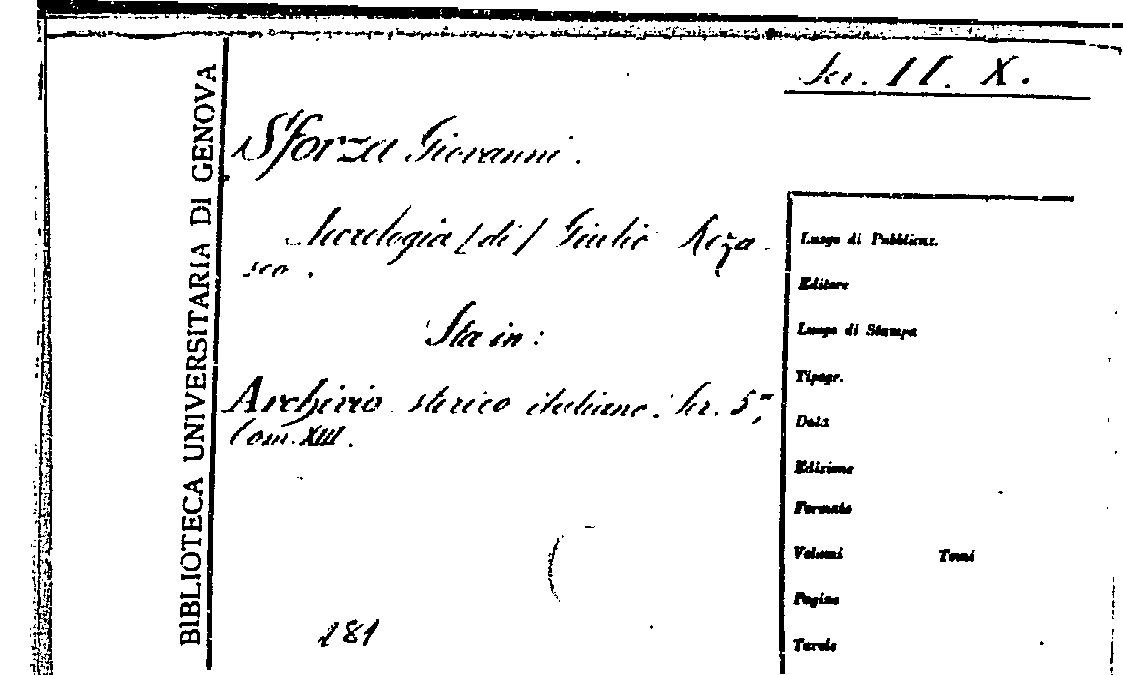 BIBLIOTECA UNIVERSITARIA DI GENOVA
Ser. II. X.
Sforza Giovanni.
Necrologia /di/ Giulio Reza-
sco.
Sta in:
Archivio storico italiano. Ser. 5ª,
Tom. XIII.
181
Luogo di Pubblicaz.
Editore
Luogo di Stampa
Tipogr.
Data
Edizione
Formato
Volumi Tomi
Pagine
Tavole